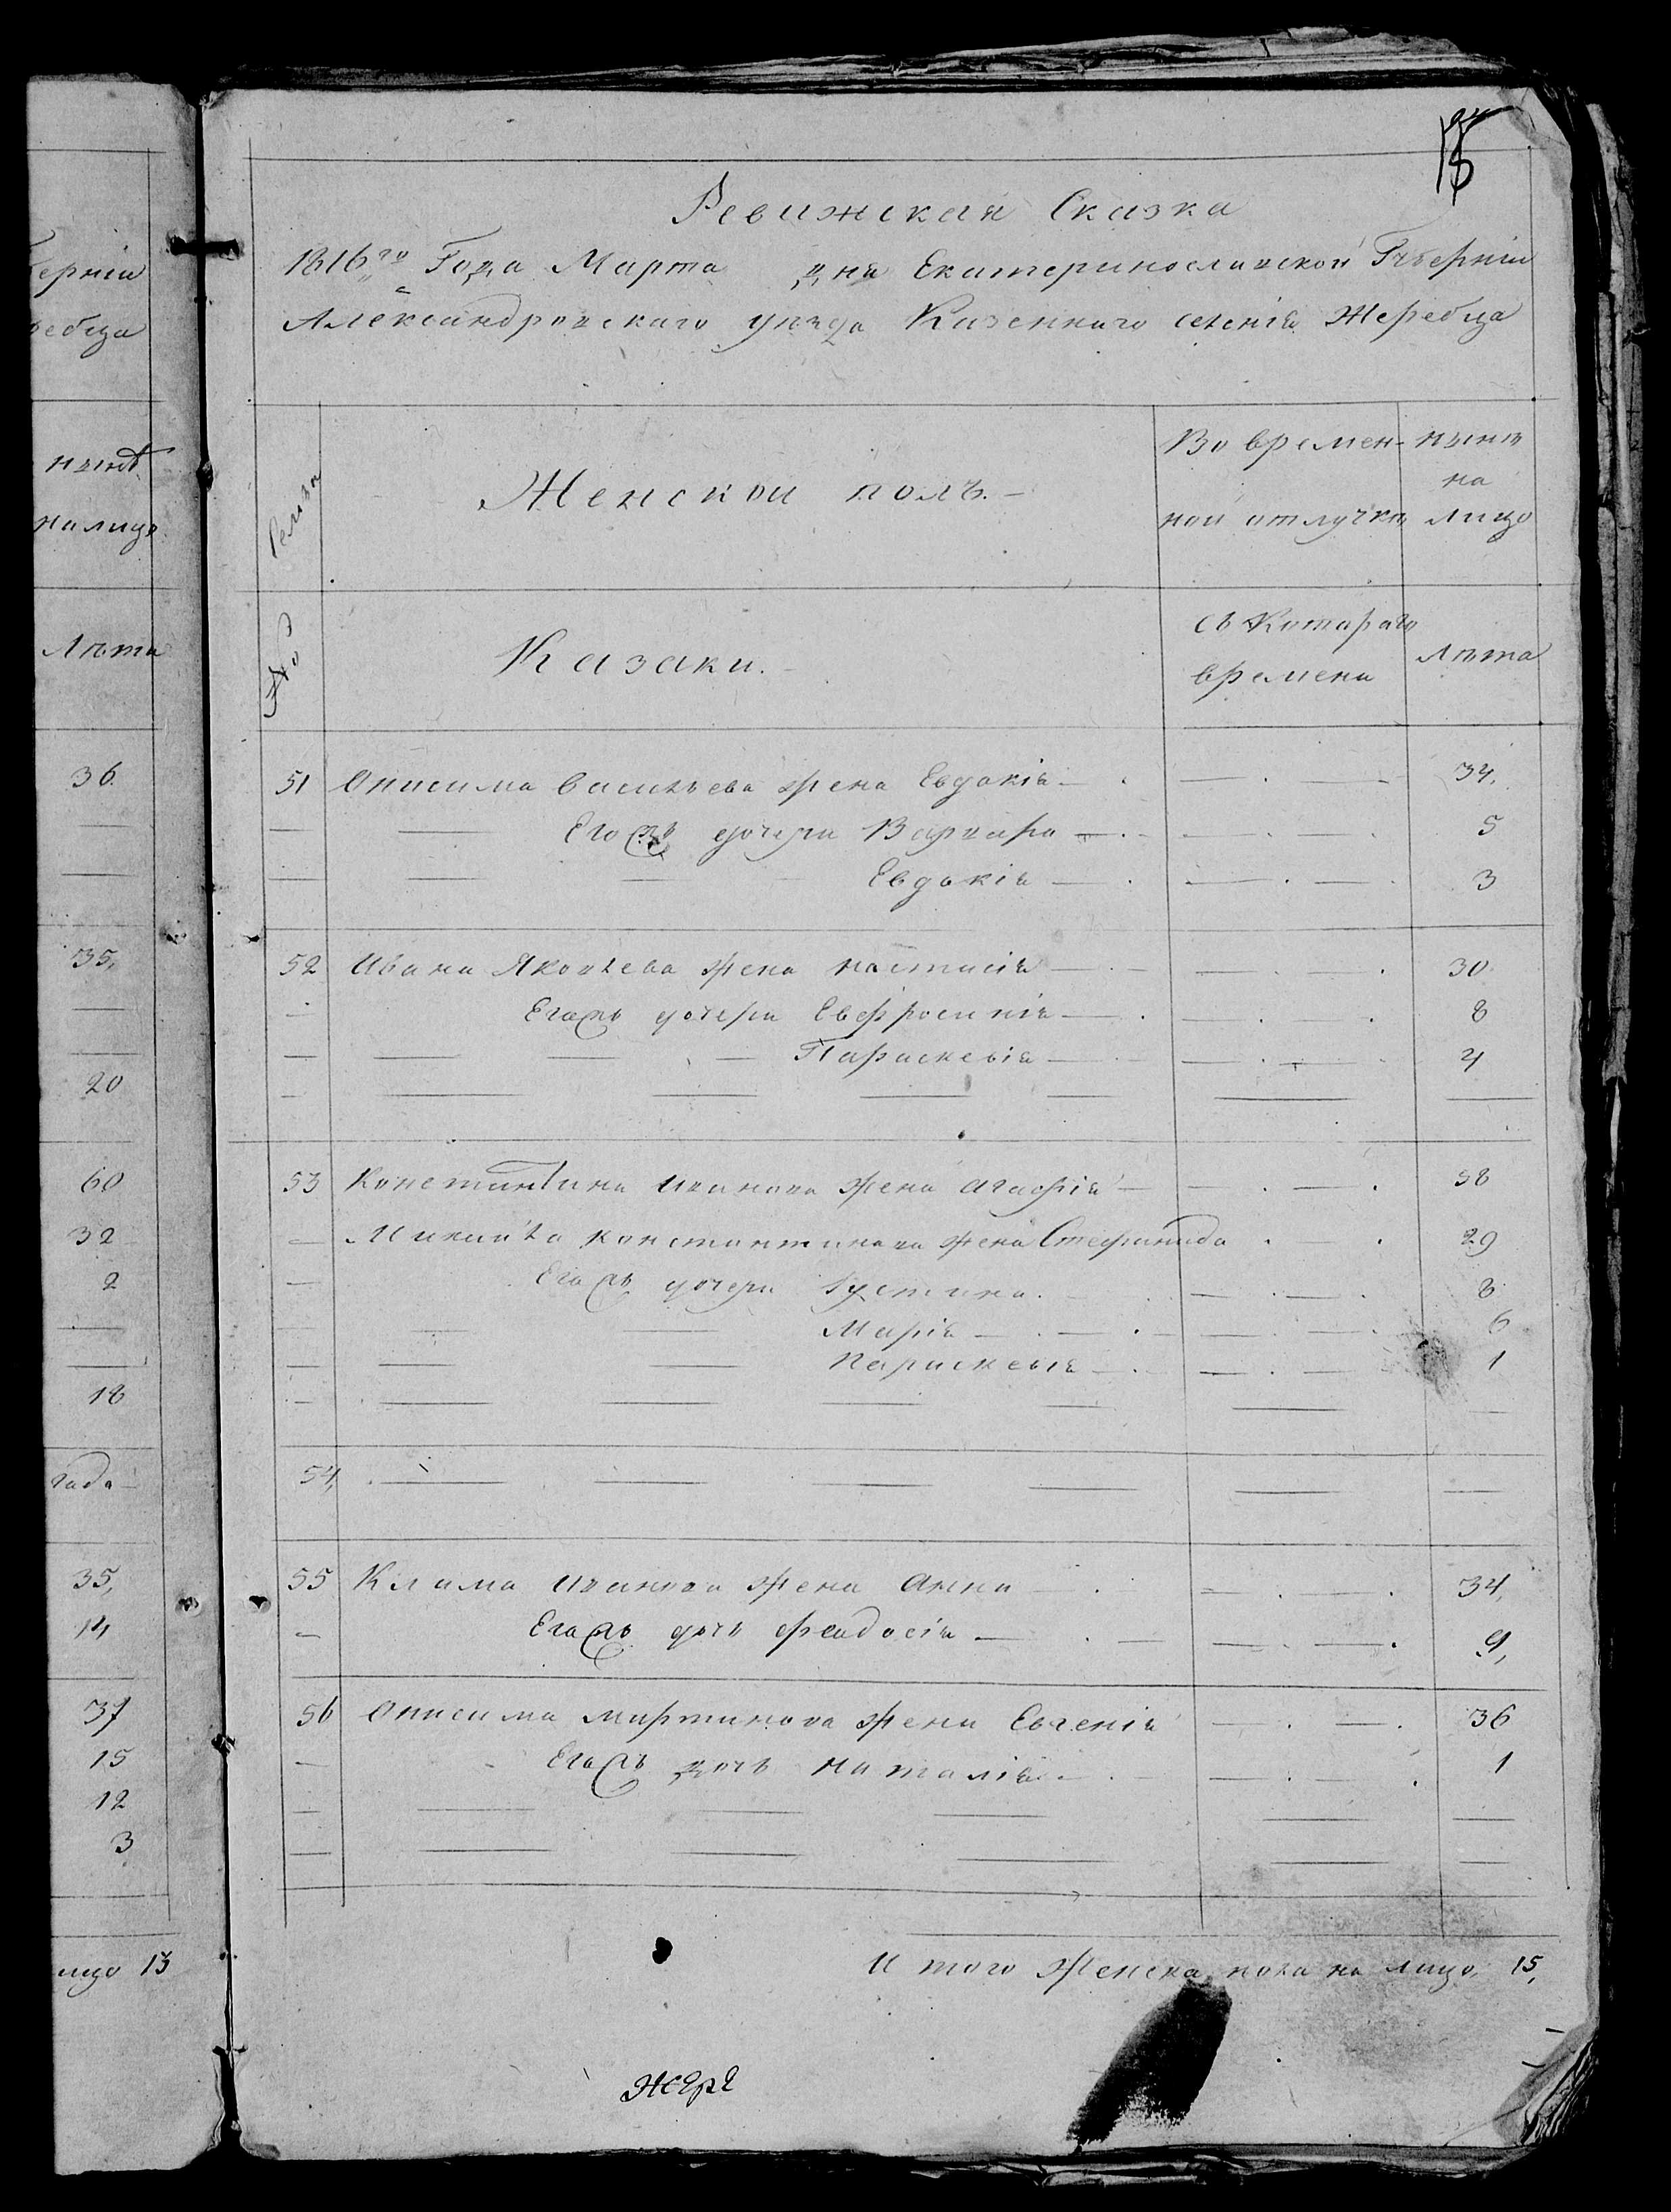 Ревижская Сказка
1816го Года Марта дня Екатеринославской Губерніи
Александровскаго уезда Казеннаго селенія Жеребца
Женской полъ.
Во времен-
ной отлучкѣ
нынѣ
на
лицо
Казаки.
съ Котораго
времени
Лѣта
51 Онисима Васильева жена Евдокія 34,
Егожъ дочери Варвара 5
Евдокія 3
52 Ивана Яковлева жена настасія 30
Егожъ дочери Евфросинія 8
Параскевія 4
53 Константина Иванова жена агафія 58
Михайла константинова жена Стефанида 29
Егожъ дочери Устина 8
Марія 6
Параскевія 1
54,
55 Клима Иванова жена анна 34,
Егожъ дочь феодосія 9,
56 Онисима мартинова жена Евгенія 36
Егожъ дочь наталія 1
И того женска пола на лицо 15,
Жере
ерніи
ребца
нынѣ
налицо
Лѣта
36
35,
20
60
32
2
18
года
35,
14
37
15
12
3
лицо 13